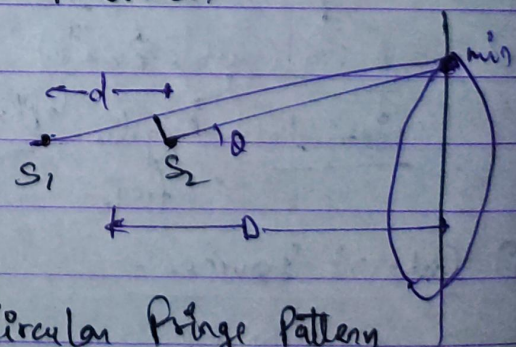 d
min
S1
S2
θ
D
Circular Fringe Pattern